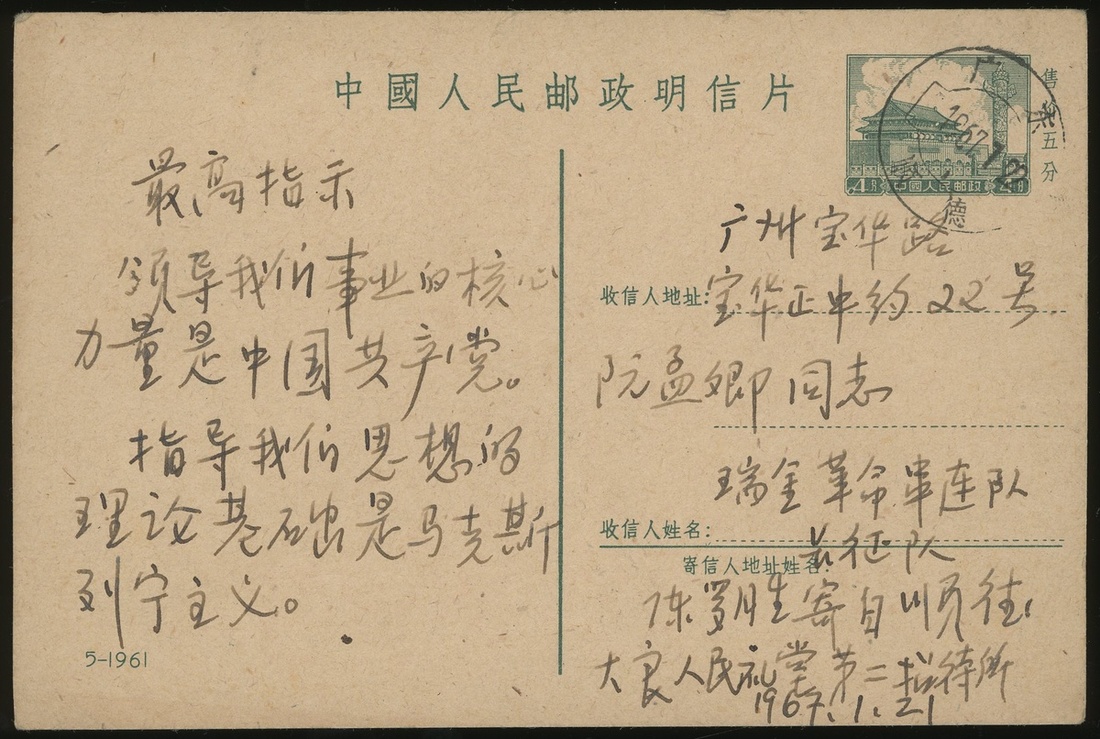 中國人民邮政明信片
售价五分
中國人民邮政
广东
1967.1.22
德
最高指示
领导我们事业的核心
力量是中国共产党。
指导我们思想的
理论基础是马克斯
列宁主义。
5-1961
广州宝华路
收信人地址:宝华正中约22号
阮孟卿同志
瑞金革命串连队
收信人姓名:
长征队
寄信人地址姓名:
陈罗生寄自顺德
大良人民礼堂第二招待所
1967.1.21